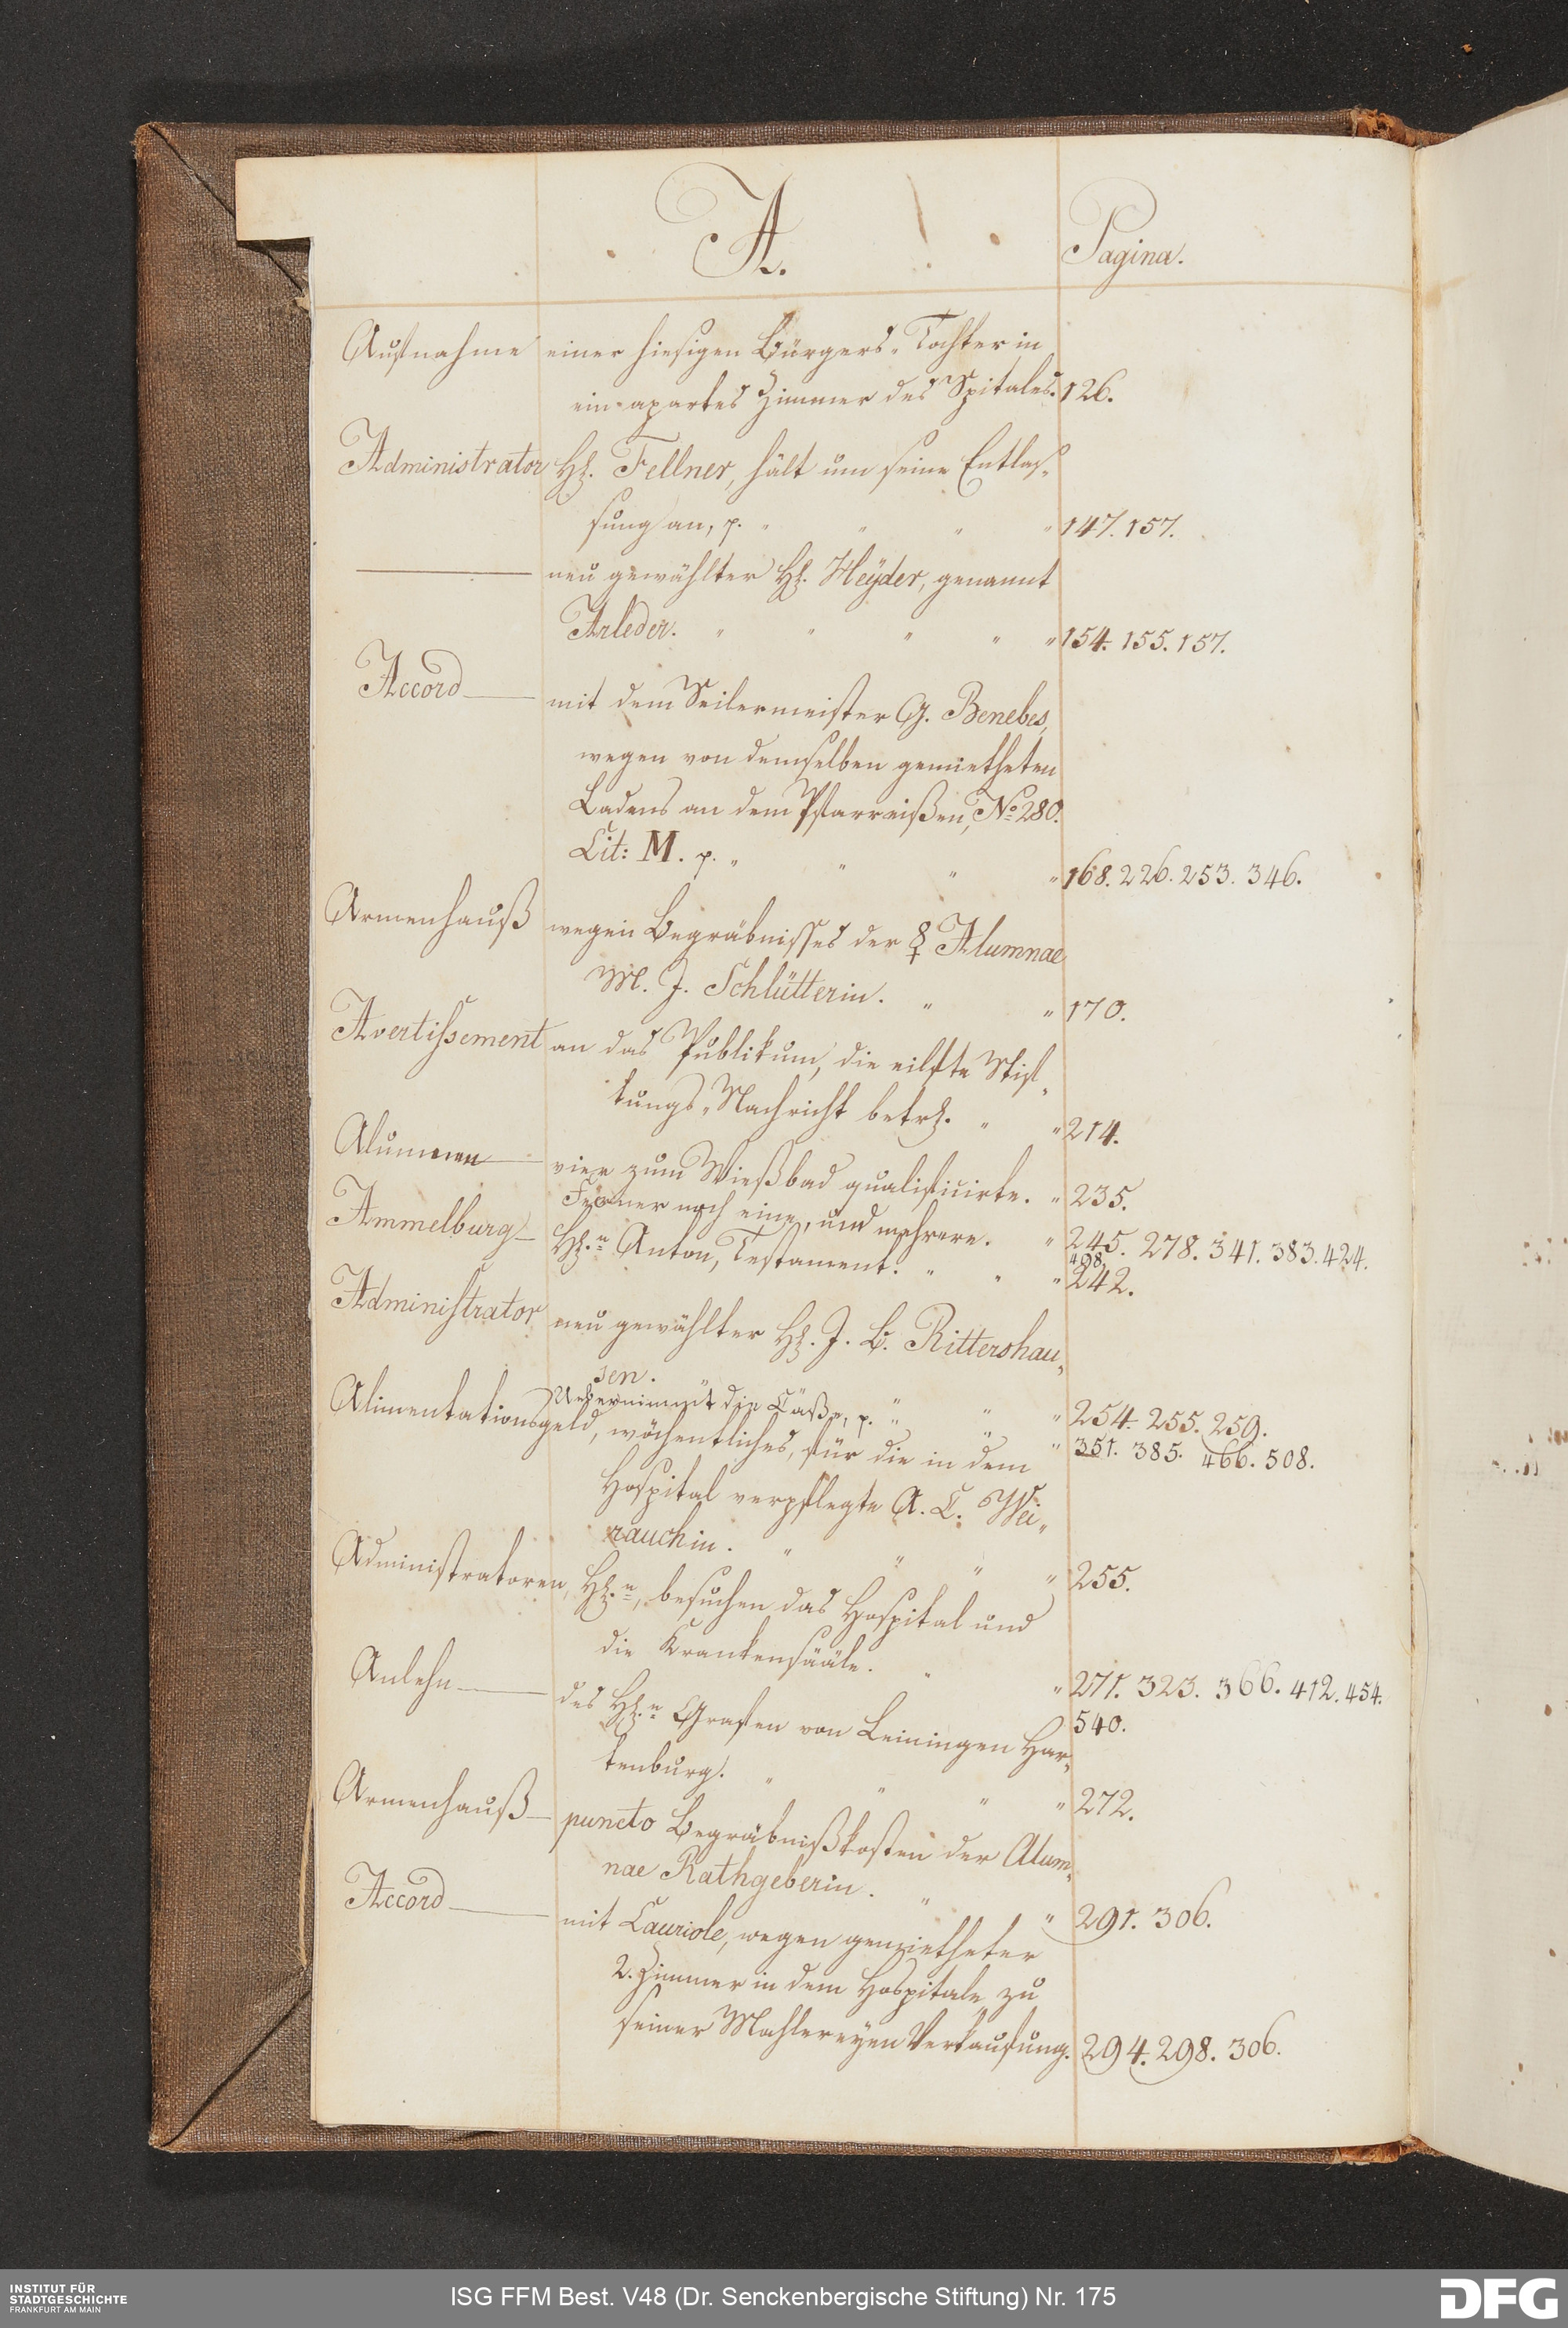 A.
Pagina.
Aufnahme einer hiesigen Bürgers-Tochter in
ein apartes Zimmer des Spitales. 126.
Administrator Hh. Fellner, hält um seine Entlas-
sung an, p. " " " " 147. 157.
—— neu gewählter Hh. Heÿder, genannt
Arleder. " " " " " 154. 155. 157.
Accord — mit dem Seilermeister G. Benebes,
wegen von demselben gemietheten
Ladens an dem Pfarreißen, No. 280.
Lit: M. p. " " " " 168. 226. 253. 346.
Armenhauß wegen Begräbnisses der Alumnae
M. J. Schlütterin. " " 170.
Avertissement an das Publikum, die eilfte Stif-
tungs-Nachricht betrh. " " 214.
Alumnen — vier zum Wießbad qualificirte. " 235.
Ferner noch eine, und mehrere. " 245. 278. 341. 383. 424.
498.
Ammelburg — Hh.n Anton, Testament. " " " 242.
Administrator neu gewählter Hh. J. B. Rittershau-
sen. " " " 254. 255. 259.
Uebernimmt die Caße, p. " " " 351. 385. 466. 508.
Alimentationsgeld, wöchentliches, für die in dem
Hospital verpflegte A. C. Wei-
rauchin. " " " " 255.
Administratoren, Hh.n, besuchen das Hospital und
die Krankensääle. " " 271. 323. 366. 412. 454.
540.
Anlehn — des Hh.n Grafen von Leiningen Har-
tenburg. " " " " 272.
Armenhauß — puncto Begräbnißkosten der Alum-
nae Rathgeberin. " " 291. 306.
Accord — mit Cauriole, wegen gemietheter
2. Zimmer in dem Hospitale zu
seiner Mahlereyen Verkaufung. 294. 298. 306.
INSTITUT FÜR
STADTGESCHICHTE
FRANKFURT AM MAIN
ISG FFM Best. V48 (Dr. Senckenbergische Stiftung) Nr. 175
DFG